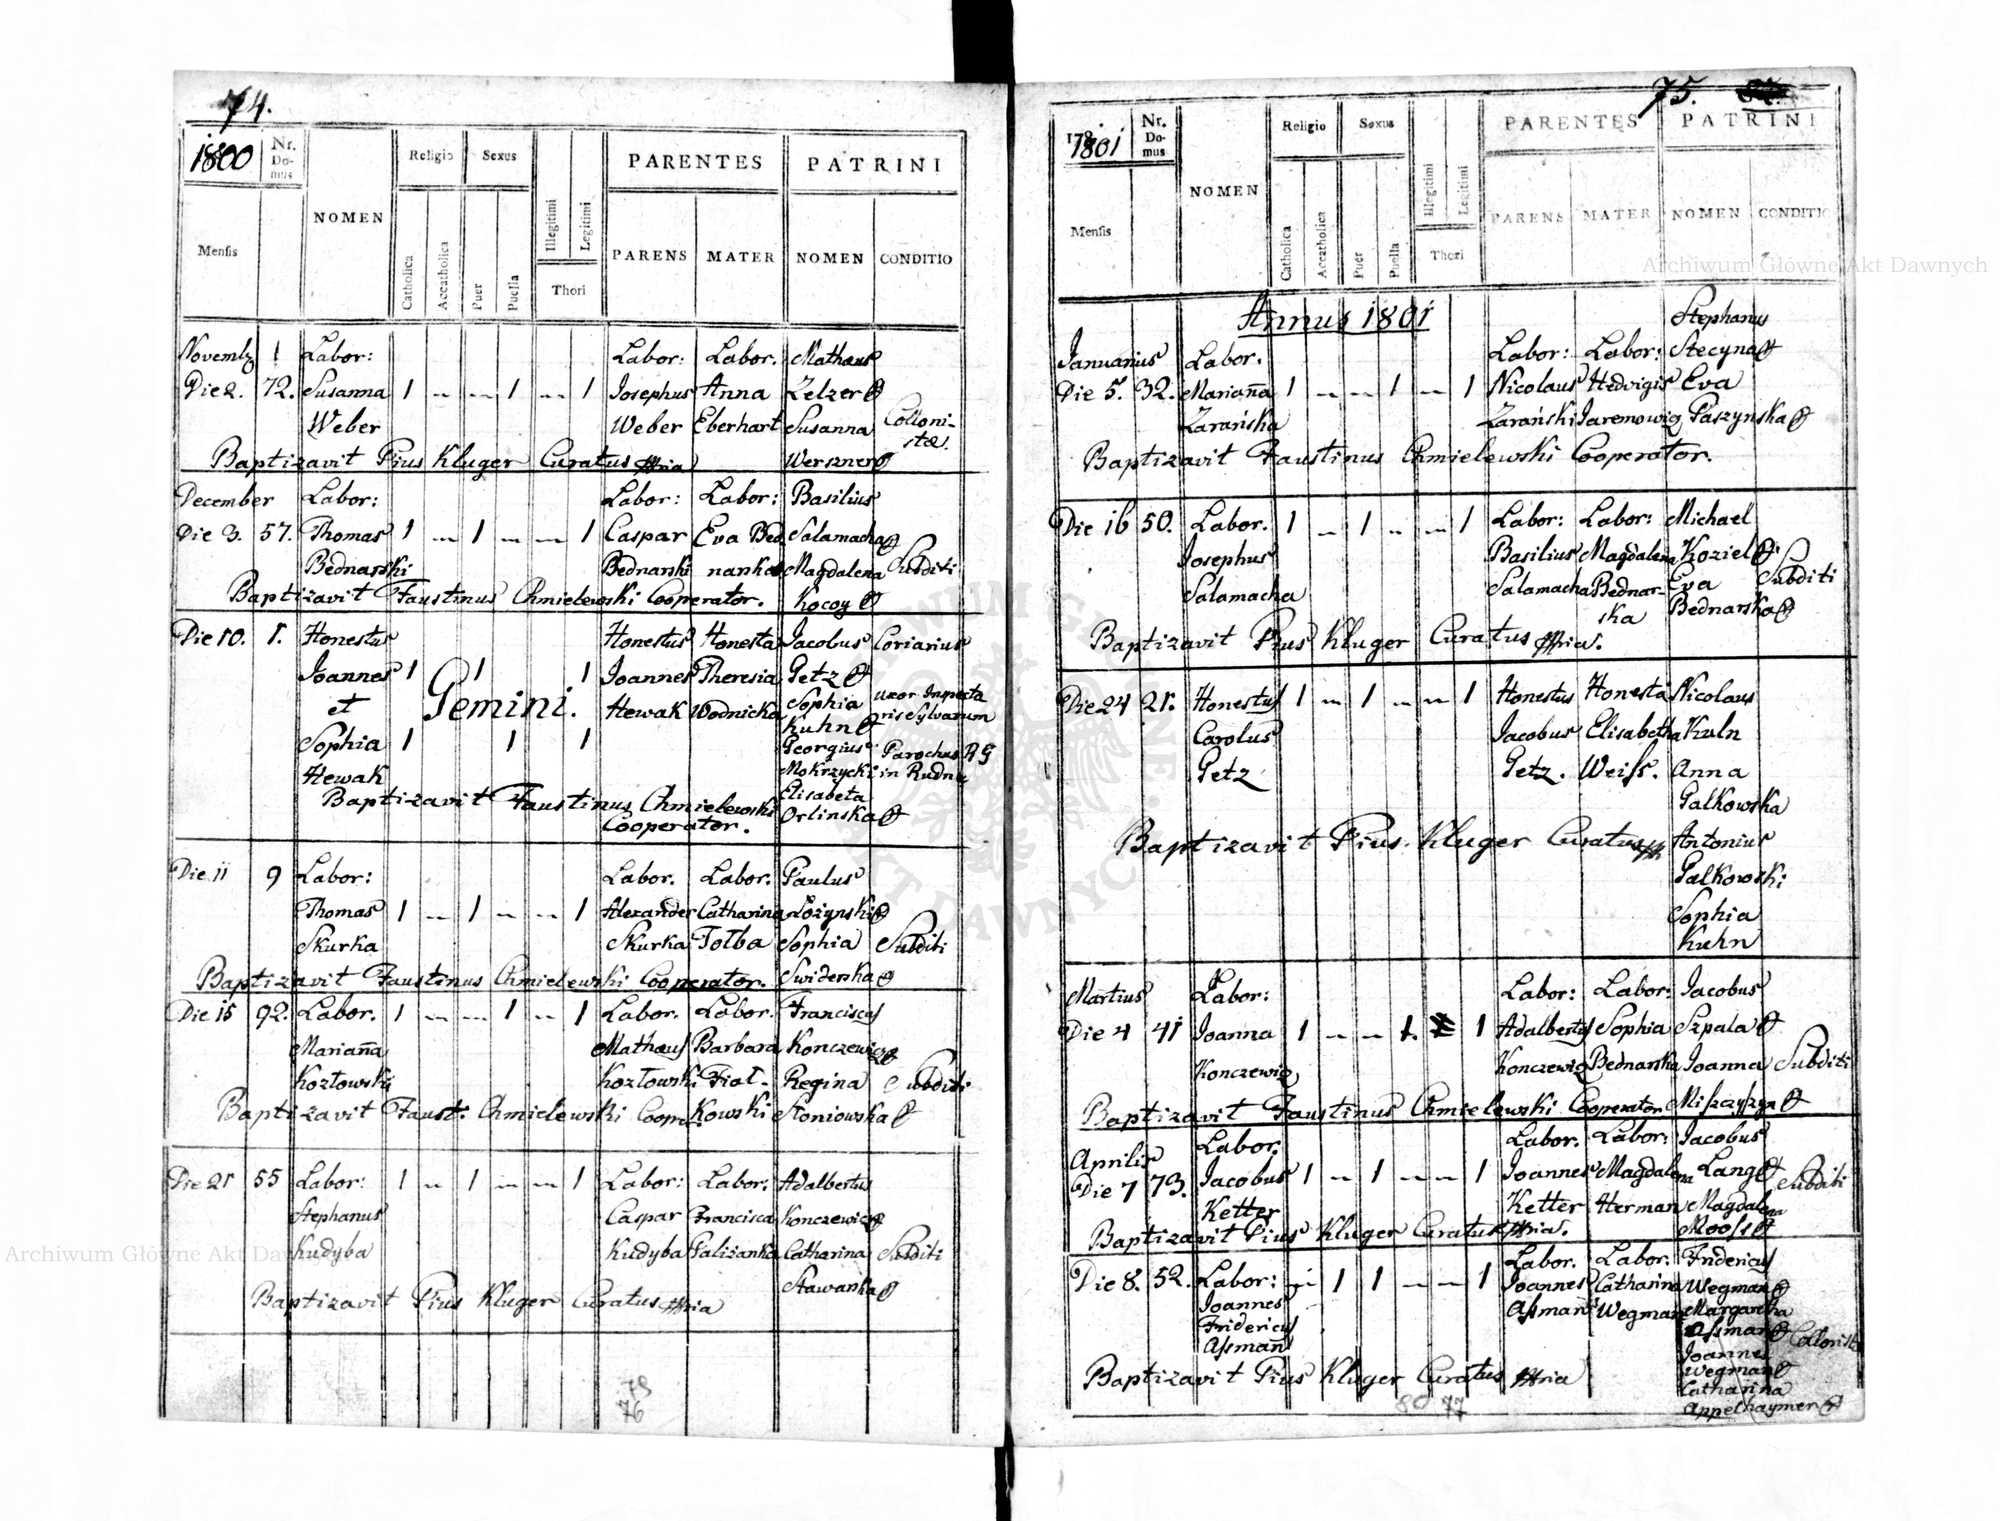 74.
1800
Nr. Domus
NOMEN
Religio
Sexus
PARENTES
PATRINI
Mensis
Catholica
Accatholica
Puer
Puella
Illegitimi
Legitimi
Thori
PARENS
MATER
NOMEN
CONDITIO
Labor: Labor: Labor. Mathaus
Die 2. 72. Susanna 1 – – 1 – 1 Josephus Anna Zelzer
Weber Weber Eberhart Susanna Colloni-
stæ.
Baptizavit Pius Kluger Curatus Werszner
December Labor: Labor: Labor: Basilius
Die 3. 57. Thomas 1 – 1 – – 1 Caspar Eva Bed Salamacha
Bednarski Bednarski nanka Magdalena Subditi
Baptizavit Faustinus Chmielewski Cooperator. Kocoy
Die 10. 1. Honestus Honestus Honesta Jacobus Coriarius
Joannes 1 1 1 Joannes Theresia Getz
et Gemini. Hewak Wodnicka Sophia uxor Inspecto
Kuhn ris Sylvarum
Sophia 1 1 1 Georgius Parochus R G
Hewak Mokrzycki in Rudne
Baptizavit Faustinus Chmielewski Elisabeta
Cooperator. Orlinska
Die 11 9 Labor: Labor. Labor. Paulus
Thomas 1 – 1 – – 1 Alexander Catharina Łożynski
Skurka Skurka Tołba Sophia Subditi
Baptizavit Faustinus Chmielewski Cooperator. Swiderska
Die 15 92. Labor. 1 – – 1 – 1 Labor. Labor. Franciscus
Mariaña Mathaus Barbara Konczewicz
Kozłowski Kozłowski Fiał- Regina Subditi
Baptizavit Faust: Chmielewski Coop. Kowski Słoniowska
Die 21 55 Labor: 1 – 1 – – 1 Labor: Labor: Adalbertus
Stephanus Caspar Francisca Konczewicz
Kudyba Kudyba Galizanka Catharina Subditi
Baptizavit Pius Kluger Curatus Stawanka
75.
1801
Nr. Domus
NOMEN
Religio
Sexus
PARENTES
PATRINI
Mensis
Catholica
Accatholica
Puer
Puella
Illegitimi
Legitimi
Thori
PARENS
MATER
NOMEN
CONDITIO
Annus 1801
Stephanus
Januarius Labor. Labor: Labor: Stecyna
Die 5. 32. Mariaña 1 – – 1 – 1 Nicolaus Hedvigis Eva
Zarańska Zarański Jaremowicz Paszynska
Baptizavit Faustinus Chmielewski Cooperator.
Die 16 50. Labor. 1 – 1 – – 1 Labor: Labor: Michael
Josephus Basilius Magdalena Kozieł Subditi
Salamacha Salamacha Bednar- Eva
ska Bednarska
Baptizavit Pius Kluger Curatus
Die 24 21. Honestus 1 – 1 – – 1 Honestus Honesta Nicolaus
Carolus Jacobus Elisabetha Kuhn
Getz Getz. Weiss. Anna
Galkowska
Baptizavit Pius Kluger Curatus Antonius
Galkowski
Sophia
Kuhn
Martius Labor: Labor: Labor: Jacobus
Die 4 41 Joanna 1 – – 1. 1 Adalbertus Sophia Szpala
Konczewicz Konczewicz Bednarska Joanna Subditi
Baptizavit Faustinus Chmielewski Cooperator
Aprilis Labor. Labor. Labor: Jacobus
Die 7 73. Jacobus 1 – 1 – – 1 Joannes Magdalena Lang Subditi
Ketter Ketter Herman Magdalena
Baptizavit Pius Kluger Curatus
Labor. Labor: Fridericus
Die 8. 52. Labor: – 1 1 – – 1 Joannes Catharina Wegman
Joannes Assman Wegman Margaretha
Fridericus Assman
Assman Joannes
Wegman
Baptizavit Pius Kluger Curatus Catharina
Appelhaymer
79
76
80 77
Archiwum Główne Akt Dawnych
Archiwum Główne Akt Dawnych